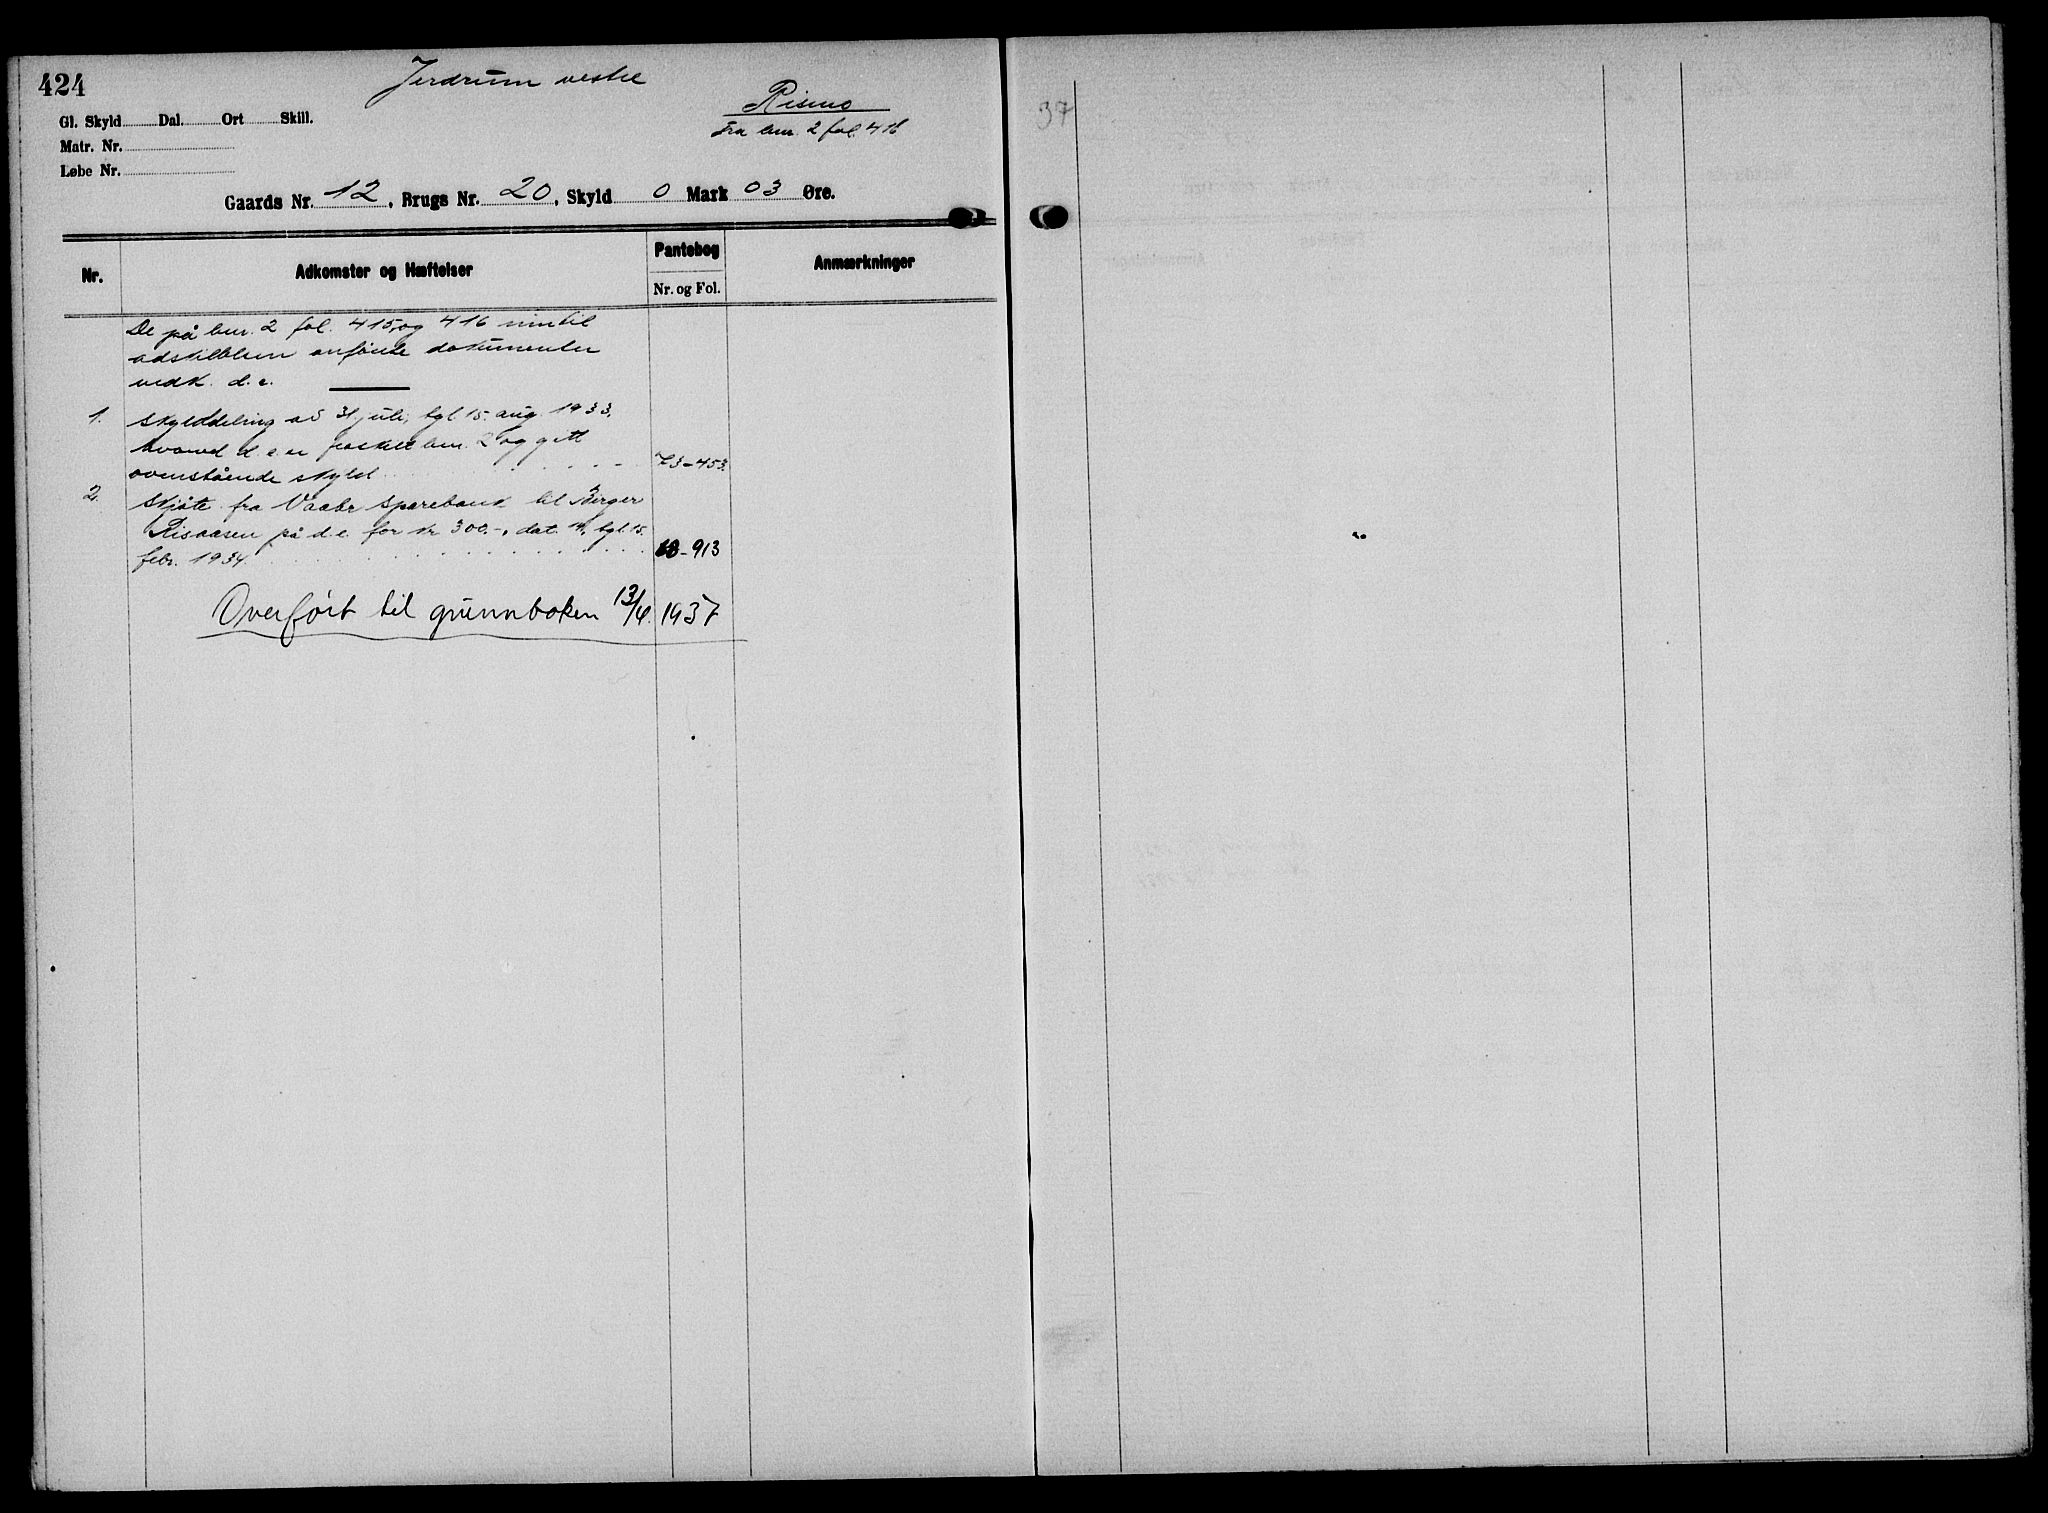 424
Jerdrum vestre
Rismo
Fra bnr. 2 fol. 416
Gl. Skyld Dal. Ort Skill.
Matr. Nr.
Løbe Nr.
Gaards Nr. 12, Brugs Nr. 20, Skyld 0 Mark 03 Øre.
Nr. Adkomster og Hæftelser Pantebog Anmærkninger
Nr. og Fol.
De på bnr. 2 fol. 415 og 416 inntil
adskillelsen anførte dokumenter
vedk. d. e.
1. Skylddeling av 31 juli, tgl. 15. aug. 1933,
hvorved d. e. er fraskilt bnr. 2 og gitt
ovenstående skyld 73-453.
2. Skjøte fra Vaaler Sparebank til Birger
Risaasen på d. e. for kr 300.-, dat. 14, tgl. 15.
febr. 1934. -913
Overført til grunnboken 13/4. 1937
37